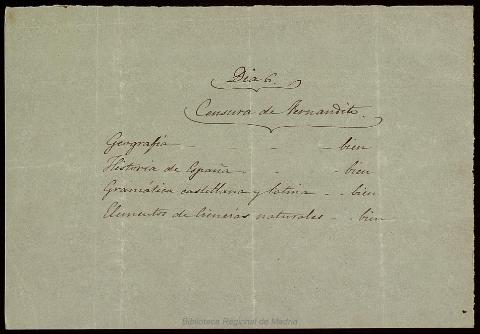 Dia 6.
Censura de Fernandito.
Geografía - - - - bien
Historia de España - - - bien
Gramática castellana y latina - - bien
Elementos de Ciencias naturales - - bien
Biblioteca Regional de Madrid